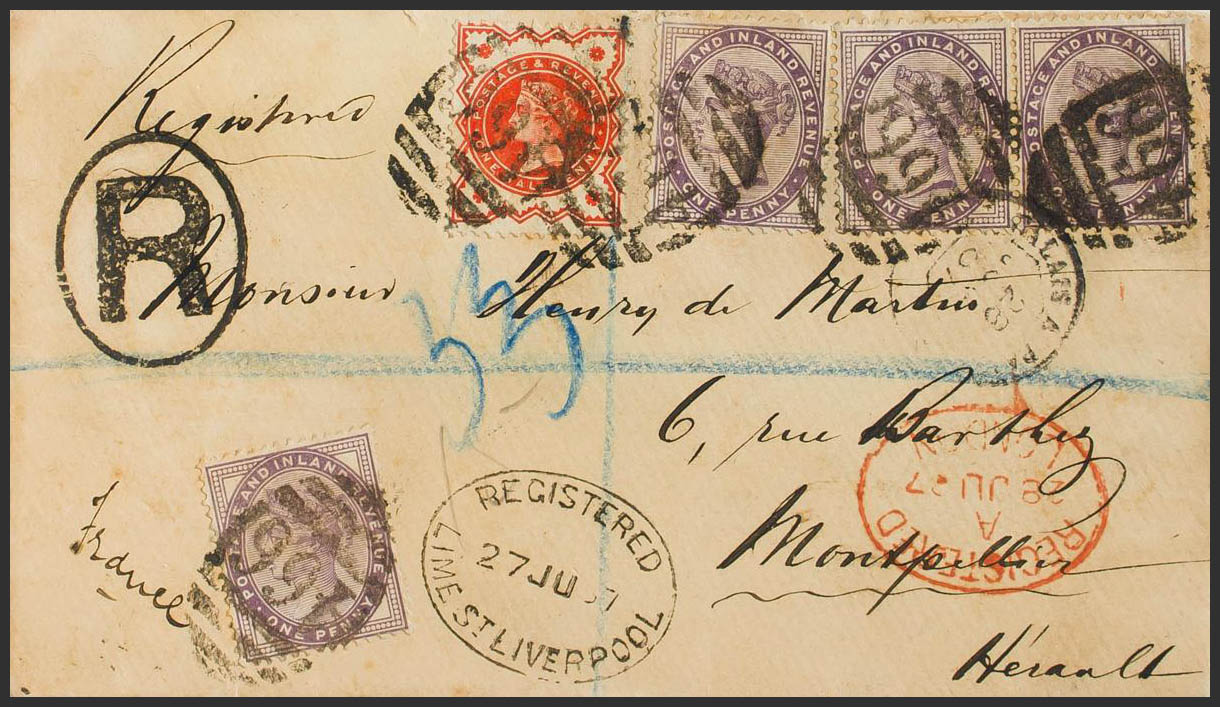 Registered
POSTAGE & REVENUE
ONE HALF PENNY
POSTAGE AND INLAND REVENUE
ONE PENNY
POSTAGE AND INLAND REVENUE
ONE PENNY
POSTAGE AND INLAND REVENUE
ONE PENNY
466
R
CALAIS A PA
Monsieur Henry de Martin
6, rue Barthez
REGISTERED
A
28 JU 87
LONDON
Montpellier
Hérault
France
POSTAGE AND INLAND REVENUE
ONE PENNY
REGISTERED
27 JU
LIME ST LIVERPOOL